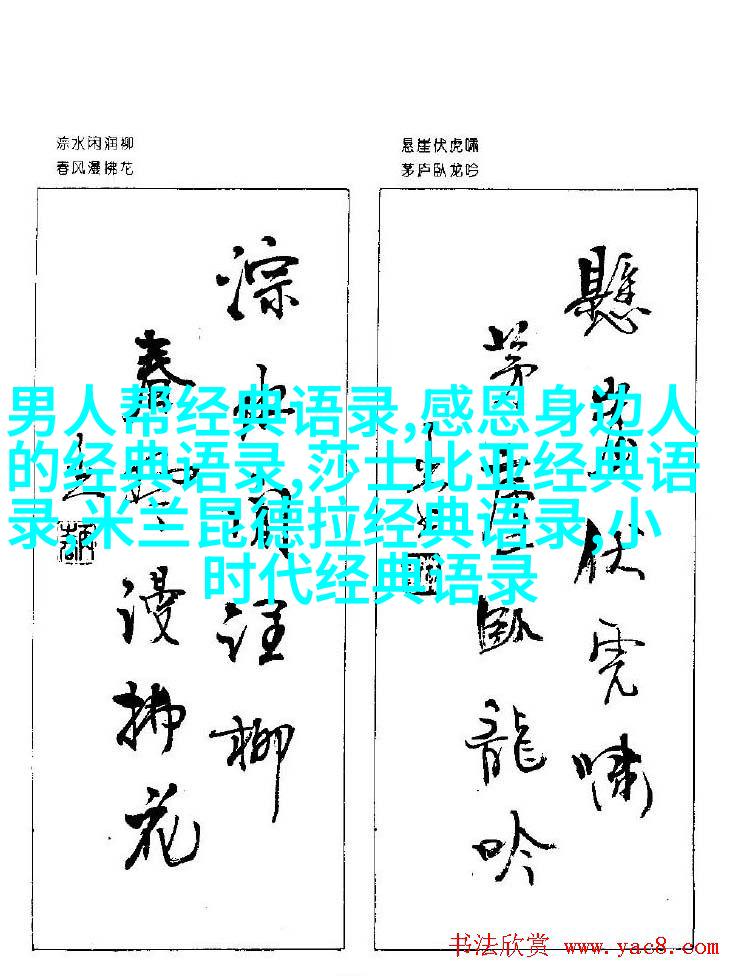 淙水闲润柳
春风漫拂花
悬崖伏虎啸
茅庐卧龙吟
懸崖伏虎嘯
茅廬臥龍吟
淙水閒潤柳
春風漫拂花
男人帮经典语录,感恩身边人
的经典语录,莎士比亚经典语
录,米兰昆德拉经典语录,小
时代经典语录
书法欣赏 www.yac8.com